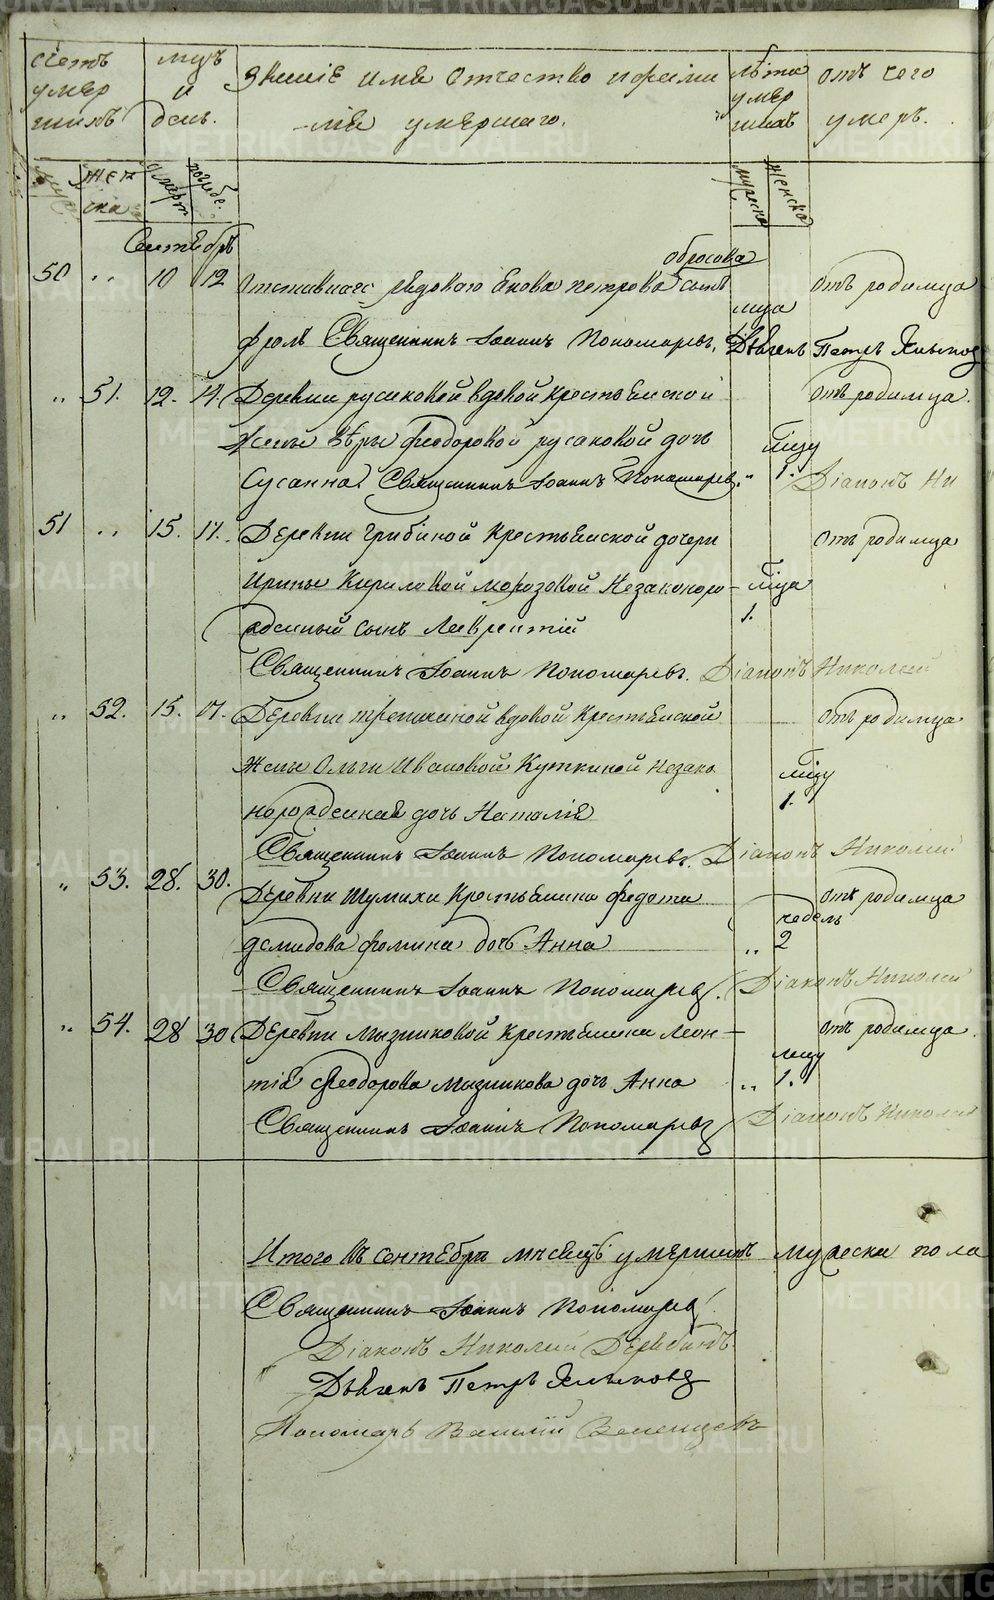 Счетъ умер шихъ
мцъ и день.
Званіе имя отчество и фами
лія умершаго.
лѣта умер шихъ
отъ чего умеръ.
муж
жен ска
смерт
погребе.
мужска
женска
Сентябрь
обросова
50 " 10 12 Отставнаго рядоваго Якова петрова сынъ отъ родимца
мца
фролъ Священникъ Іоаннъ Пономаревъ. Дьячекъ Петръ
" 51. 12. 14. Деревни русаковой вдовой крестьянской отъ родимца.
жены Вѣры Феодоровой русаковой дочь мцу
Сусанна Священникъ Іоаннъ Пономаревъ. " 1. Діаконъ Ни
51 " 15. 17. Деревни грибиной крестьянской дочери отъ родимца
Ирины Кириловой морозовой незаконоро- мца
жденный сынъ Лаврентій 1.
Священникъ Іоаннъ Пономаревъ. Діаконъ Николай
" 52. 15. 17. Деревни трешкиной вдовой крестьянской отъ родимца
жены Ольги Ивановой Куткиной незако мцу
норожденная дочь Наталія 1.
Священникъ Іоаннъ Пономаревъ. Діаконъ Николай
" 53. 28. 30. Деревни Шумихи крестьянина федота отъ родимца
недель
демидова фомина дочь Анна " 2
Священникъ Іоаннъ Пономаревъ. Діаконъ Николай
" 54. 28 30 Деревни мызниковой крестьянина Леон- отъ родимца.
мцу
тія Феодорова мызникова дочь Анна " 1.
Священникъ Іоаннъ Пономаревъ Діаконъ Николай
Итого въ сентябрѣ мѣсяцѣ умершихъ мужеска пола
Священникъ Іоаннъ Пономаревъ
Діаконъ Николай
Дьячекъ Петръ
Пономарь Василій
METRIKI.GASO-URAL.RU